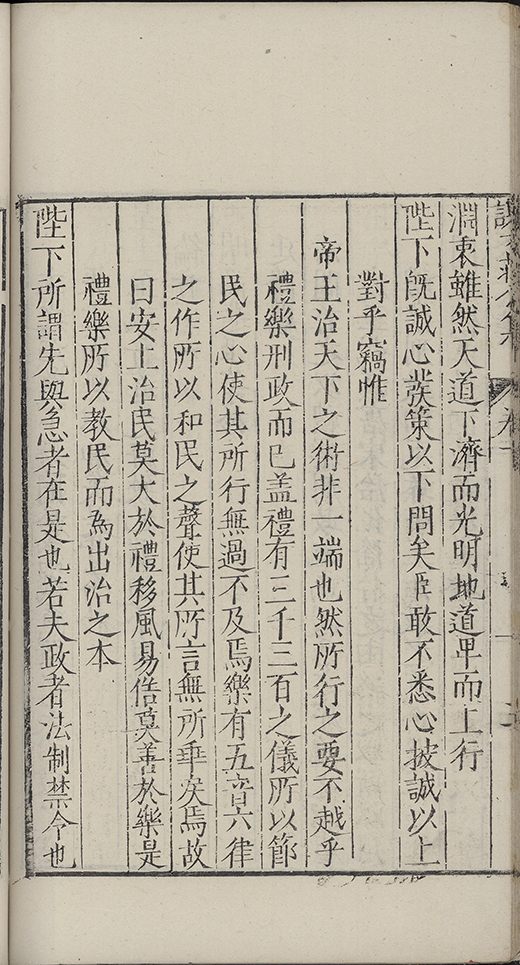 淵衷雖然天道下濟而光明地道卑而上行
陛下旣誠心發策以下問矣臣敢不悉心披誠以上
對乎竊惟
帝王治天下之術非一端也然所行之要不越乎
禮樂刑政而已盖禮有三千三百之儀所以節
民之心使其所行無過不及焉樂有五音六律
之作所以和民之聲使其所言無所乖戾焉故
曰安上治民莫大於禮移風易俗莫善於樂是
禮樂所以教民而為出治之本
陛下所謂先與急者在是也若夫政者法制禁令也